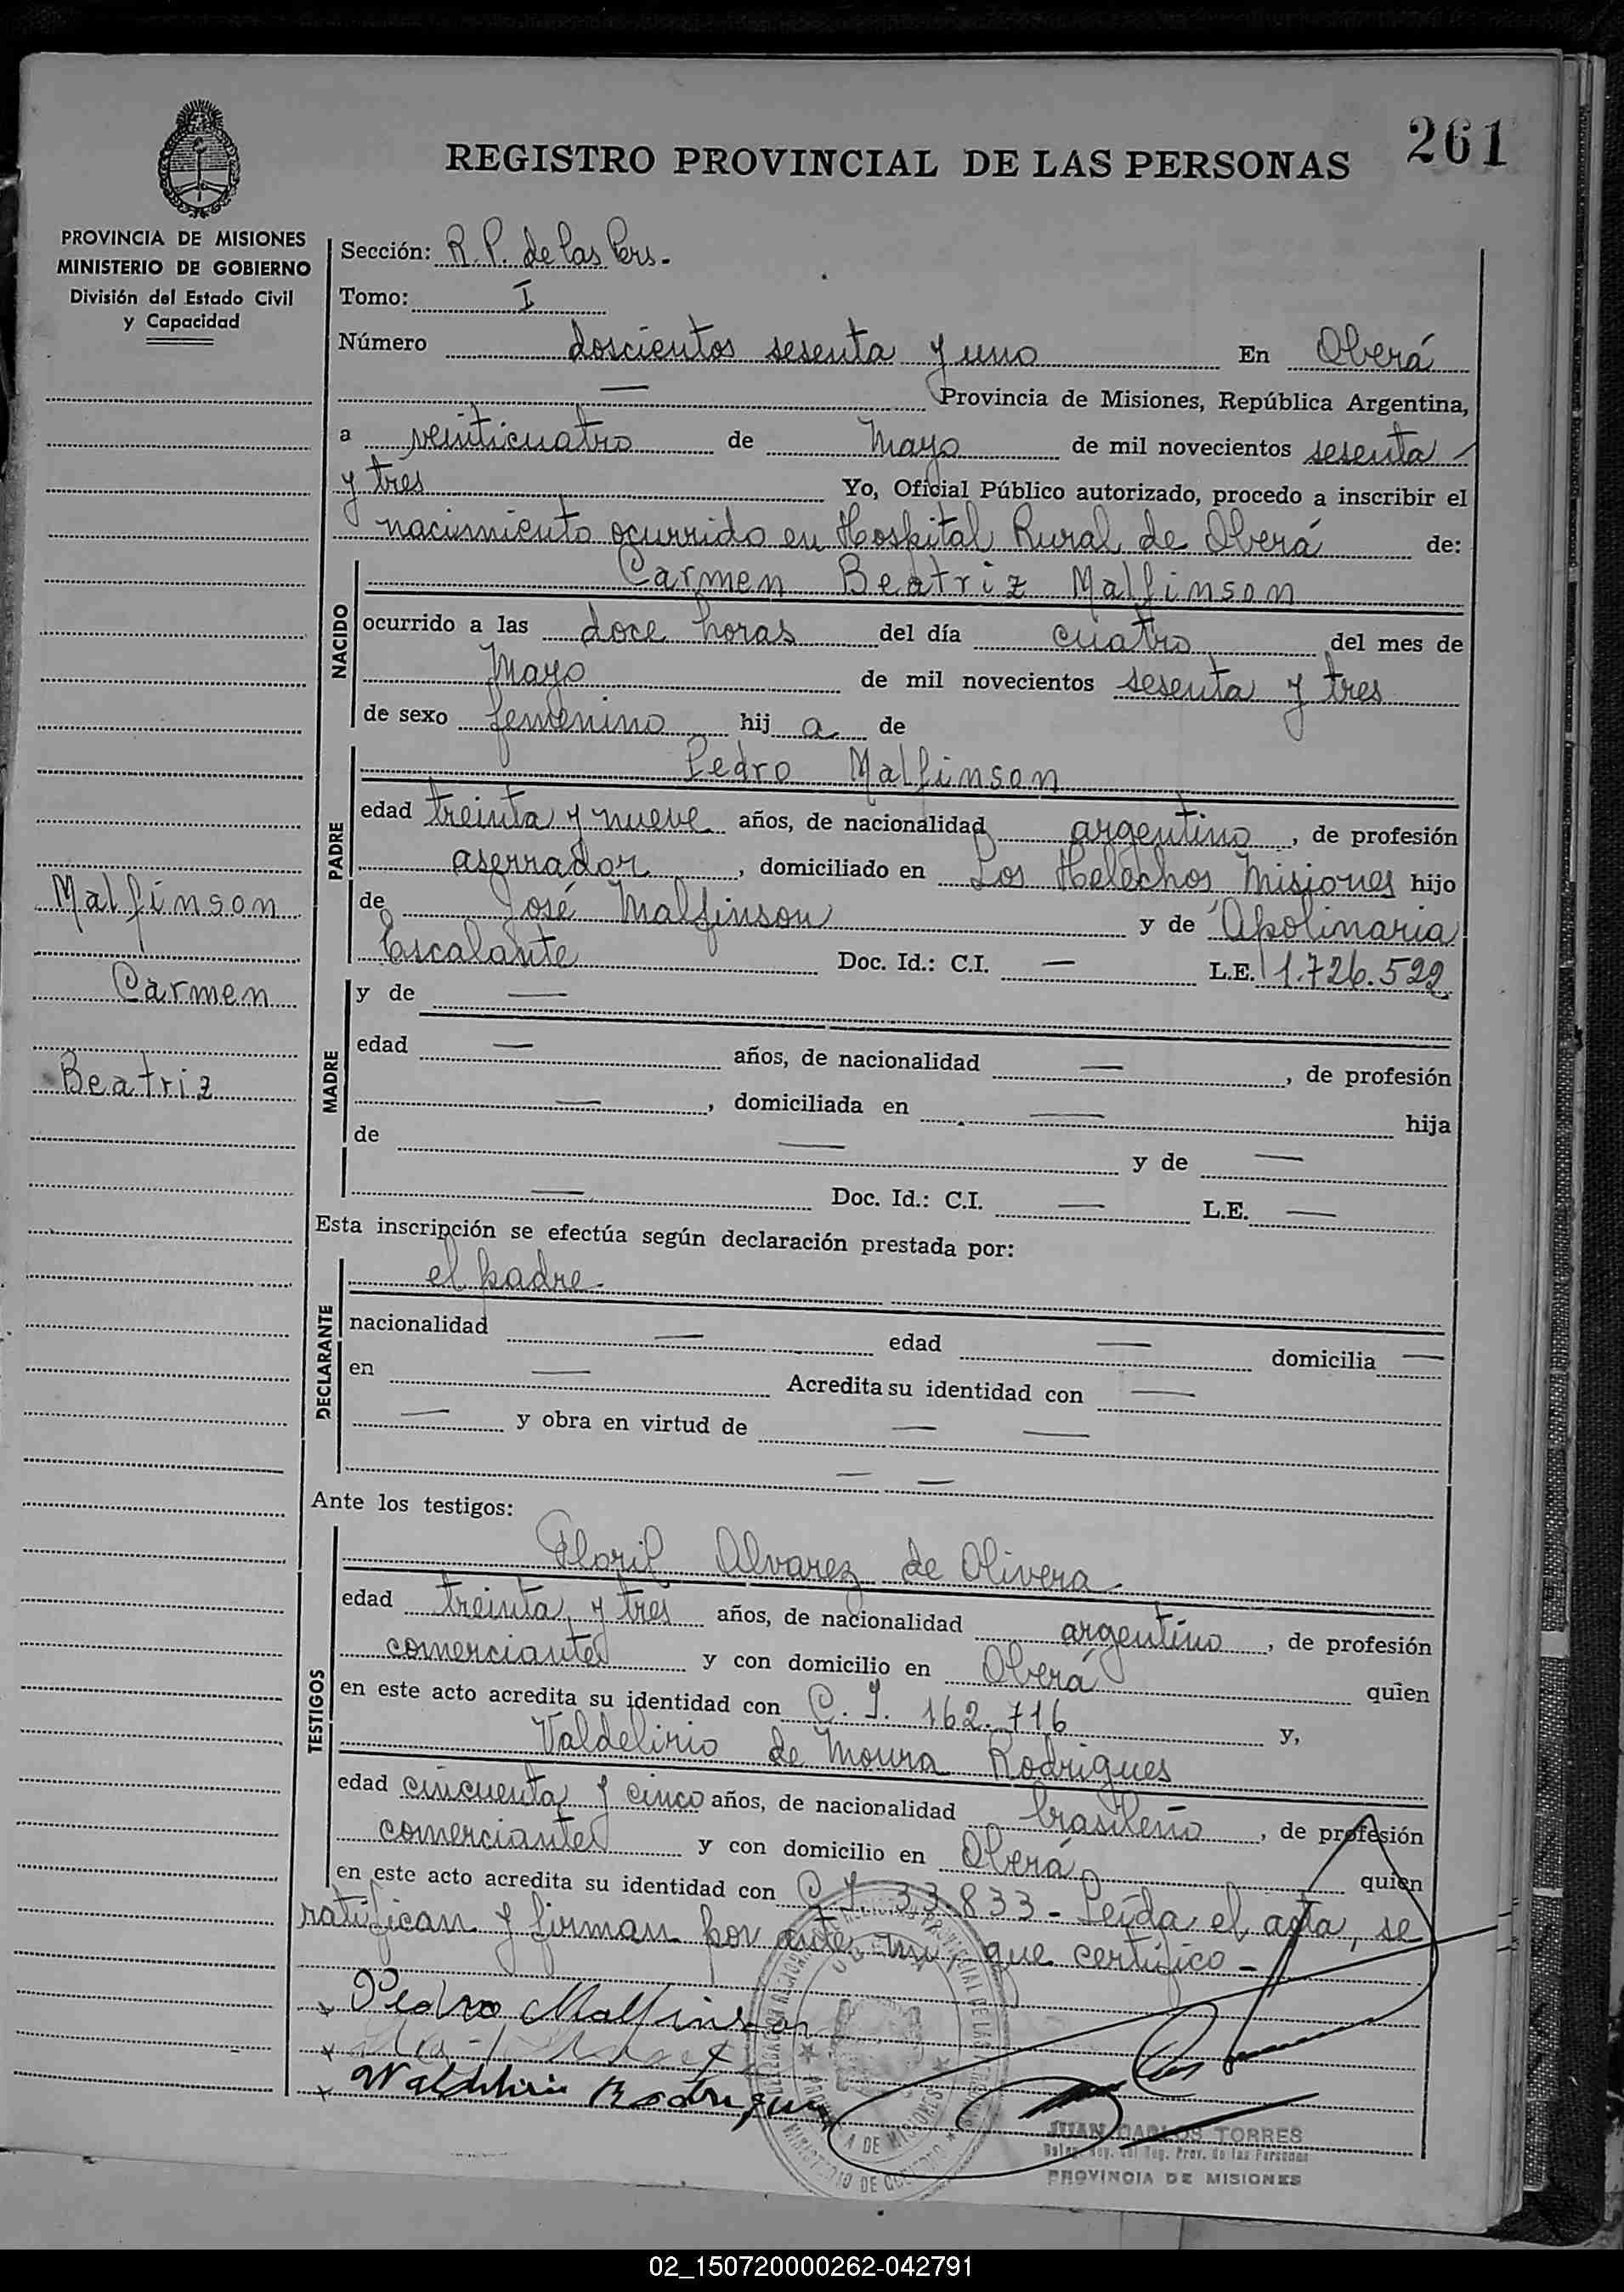 261
REGISTRO PROVINCIAL DE LAS PERSONAS
PROVINCIA DE MISIONES
MINISTERIO DE GOBIERNO
División del Estado Civil
y Capacidad
Sección: R. P. de las Pers.-
Tomo: I
Número doscientos sesenta y uno En Oberá
— Provincia de Misiones, República Argentina,
a veinticuatro de Mayo de mil novecientos sesenta
y tres Yo, Oficial Público autorizado, procedo a inscribir el
nacimiento ocurrido en Hospital Rural de Oberá de:
NACIDO
Carmen Beatriz Malfinson
ocurrido a las doce horas del día cuatro del mes de
Mayo de mil novecientos sesenta y tres
de sexo femenino hij a de
PADRE
Pedro Malfinson
edad treinta y nueve años, de nacionalidad argentino, de profesión
aserrador, domiciliado en Los Helechos Misiones hijo
de José Malfinson y de Apolinaria
Escalante Doc. Id.: C.I. — L.E. 1.726.522
Malfinson
Carmen
Beatriz
MADRE
y de —
edad — años, de nacionalidad —, de profesión
—, domiciliada en — hija
de — y de —
— Doc. Id.: C.I. — L.E. —
Esta inscripción se efectúa según declaración prestada por:
DECLARANTE
el padre.
nacionalidad — edad — domicilia —
en — Acredita su identidad con —
— y obra en virtud de — —
— —
Ante los testigos:
TESTIGOS
Floril Alvarez de Olivera
edad treinta y tres años, de nacionalidad argentino, de profesión
comerciante y con domicilio en Oberá quien
en este acto acredita su identidad con C. I. 162.716 y,
Valdelirio de Moura Rodrigues
edad cincuenta y cinco años, de nacionalidad brasileño, de profesión
comerciante y con domicilio en Oberá quien
en este acto acredita su identidad con C I 33.833 - Leída el acta, se
ratifican y firman por ante mi, que certifico -
x Pedro Malfinson
x
x Waldelirio Rodrigues
PROVINCIA DE MISIONES
MINISTERIO DE GOBIERNO
JUAN CARLOS TORRES
Reg. Prov. de las Personas
PROVINCIA DE MISIONES
02_150720000262-042791